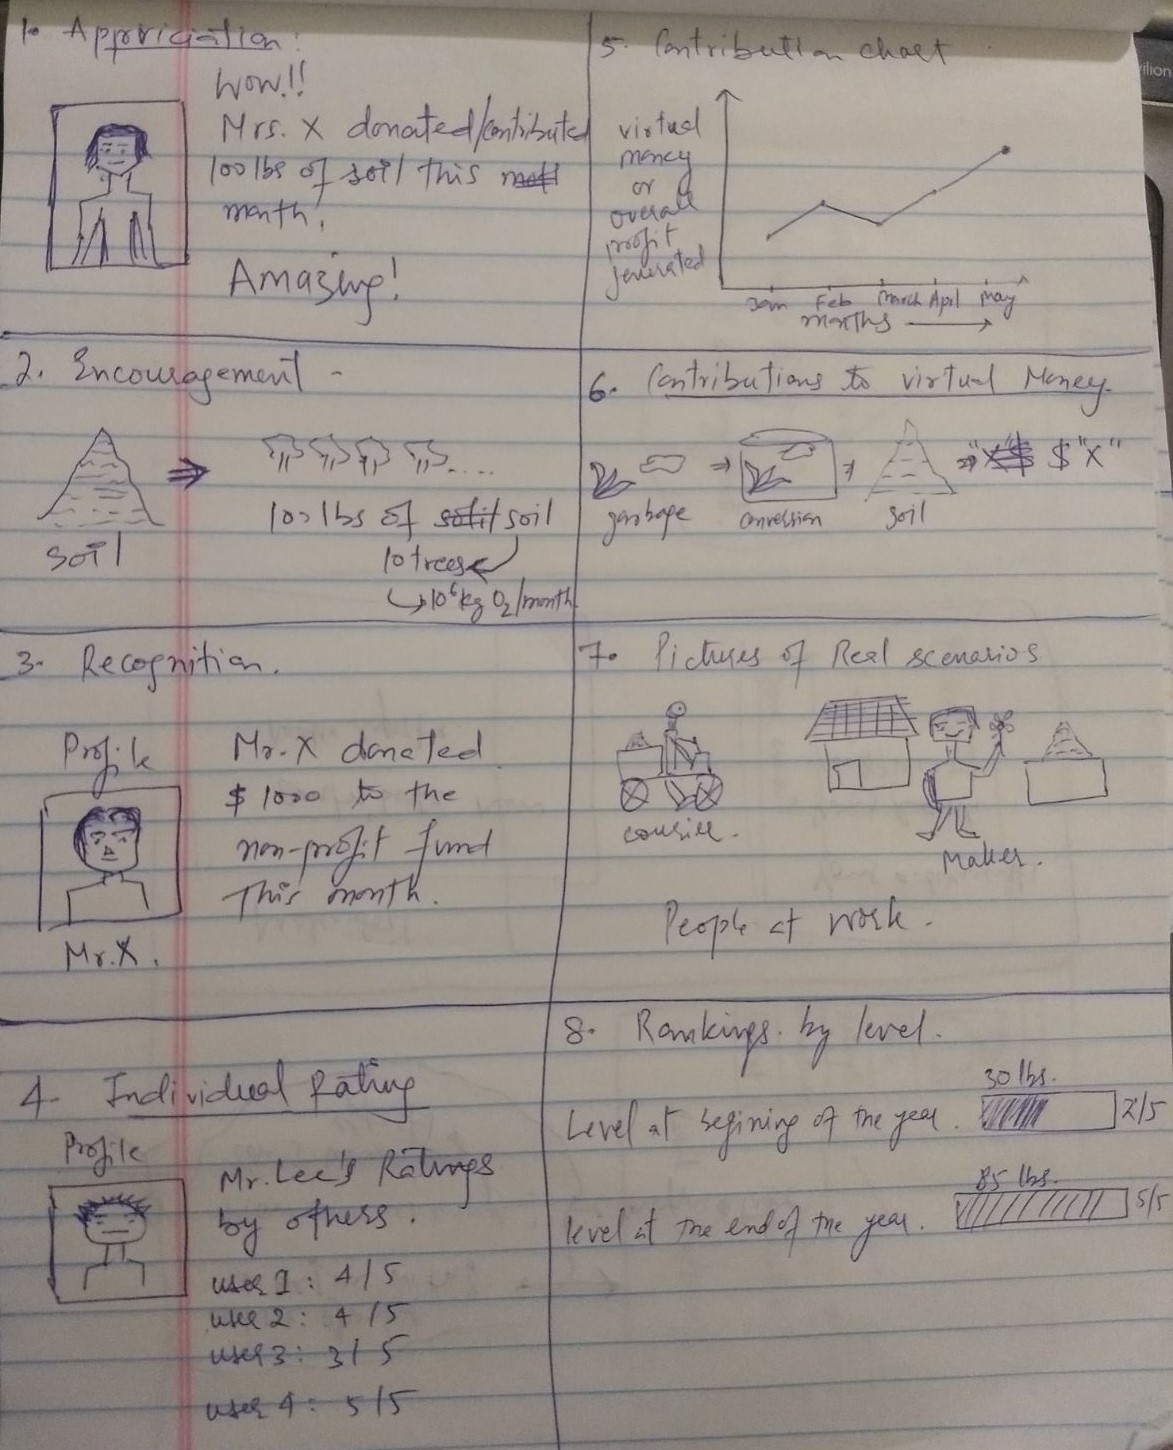 1. Appriciation:
Wow!!
Mrs. X donated/contributed
100 lbs of soil this
month!
Amazing!
2. Encouragement -
soil
100 lbs of soil
10 trees
10⁶kg O₂/month
3. Recognition.
Profile
Mr. X donated
$1000 to the
non-profit fund
This month.
Mr. X.
4. Individual Rating
Profile
Mr. Lee's Ratings
by others.
user 1: 4/5
user 2: 4/5
user 3: 3/5
user 4: 5/5
5. Contribution chart
virtual
money
or
overall
profit
generated
Jan Feb March April May
months
6. Contributions to virtual Money.
$ "X"
garbage conversion soil
7. Pictures of Real scenarios
courier.
Maker.
People at work.
8. Rankings by level.
30 lbs.
Level at begining of the year. 2/5
85 lbs.
level at the end of the year. 5/5